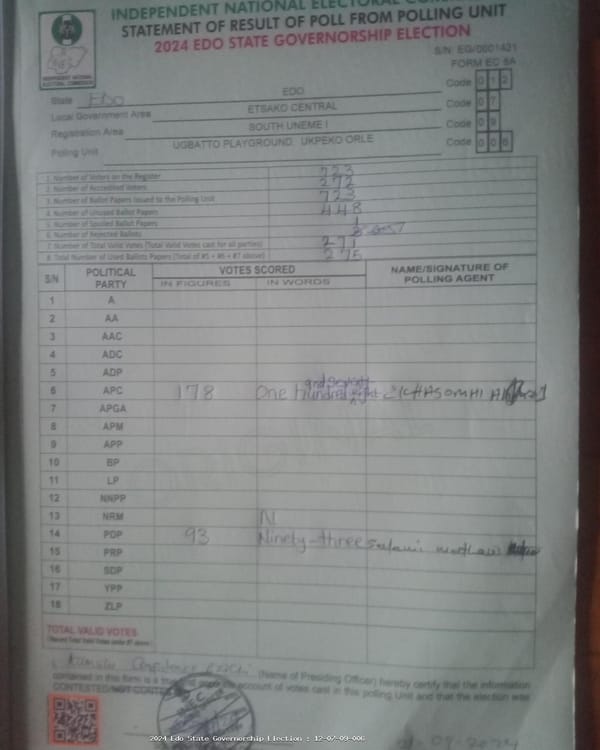 INDEPENDENT NATIONAL ELECTORAL
STATEMENT OF RESULT OF POLL FROM POLLING UNIT
2024 EDO STATE GOVERNORSHIP ELECTION
S/N: EG/0001421
FORM EC 8A
INDEPENDENT NATIONAL
ELECTORAL COMMISSION
State EDO EDO Code 0 1 2
Local Government Area ETSAKO CENTRAL Code 0 7
Registration Area SOUTH UNEME I Code 0 9
Polling Unit UGBATTO PLAYGROUND, UKPEKO ORLE Code 0 0 6
1. Number of Voters on the Register 723
2. Number of Accredited Voters 272
3. Number of Ballot Papers Issued to the Polling Unit 723
4. Number of Unused Ballot Papers 448
5. Number of Spoiled Ballot Papers 1
6. Number of Rejected Ballots
7. Number of Total Valid Votes (Total Valid Votes cast for all parties) 271
8. Total Number of Used Ballots Papers (Total of #5 + #6 + #7 above) 275
S/N POLITICAL PARTY VOTES SCORED NAME/SIGNATURE OF POLLING AGENT
IN FIGURES IN WORDS
1 A
2 AA
3 AAC
4 ADC
5 ADP
6 APC 178 One hundred and seventy eight
7 APGA
8 APM
9 APP
10 BP
11 LP
12 NNPP
13 NRM N
14 PDP 93 Ninety-three
15 PRP
16 SDP
17 YPP
18 ZLP
TOTAL VALID VOTES
(Name of Presiding Officer) hereby certify that the information
contained in this form is a true and account of votes cast in this polling Unit and that the election was
CONTESTED/NOT CONTESTED
2024 Edo State Governorship Election : 12-07-09-006